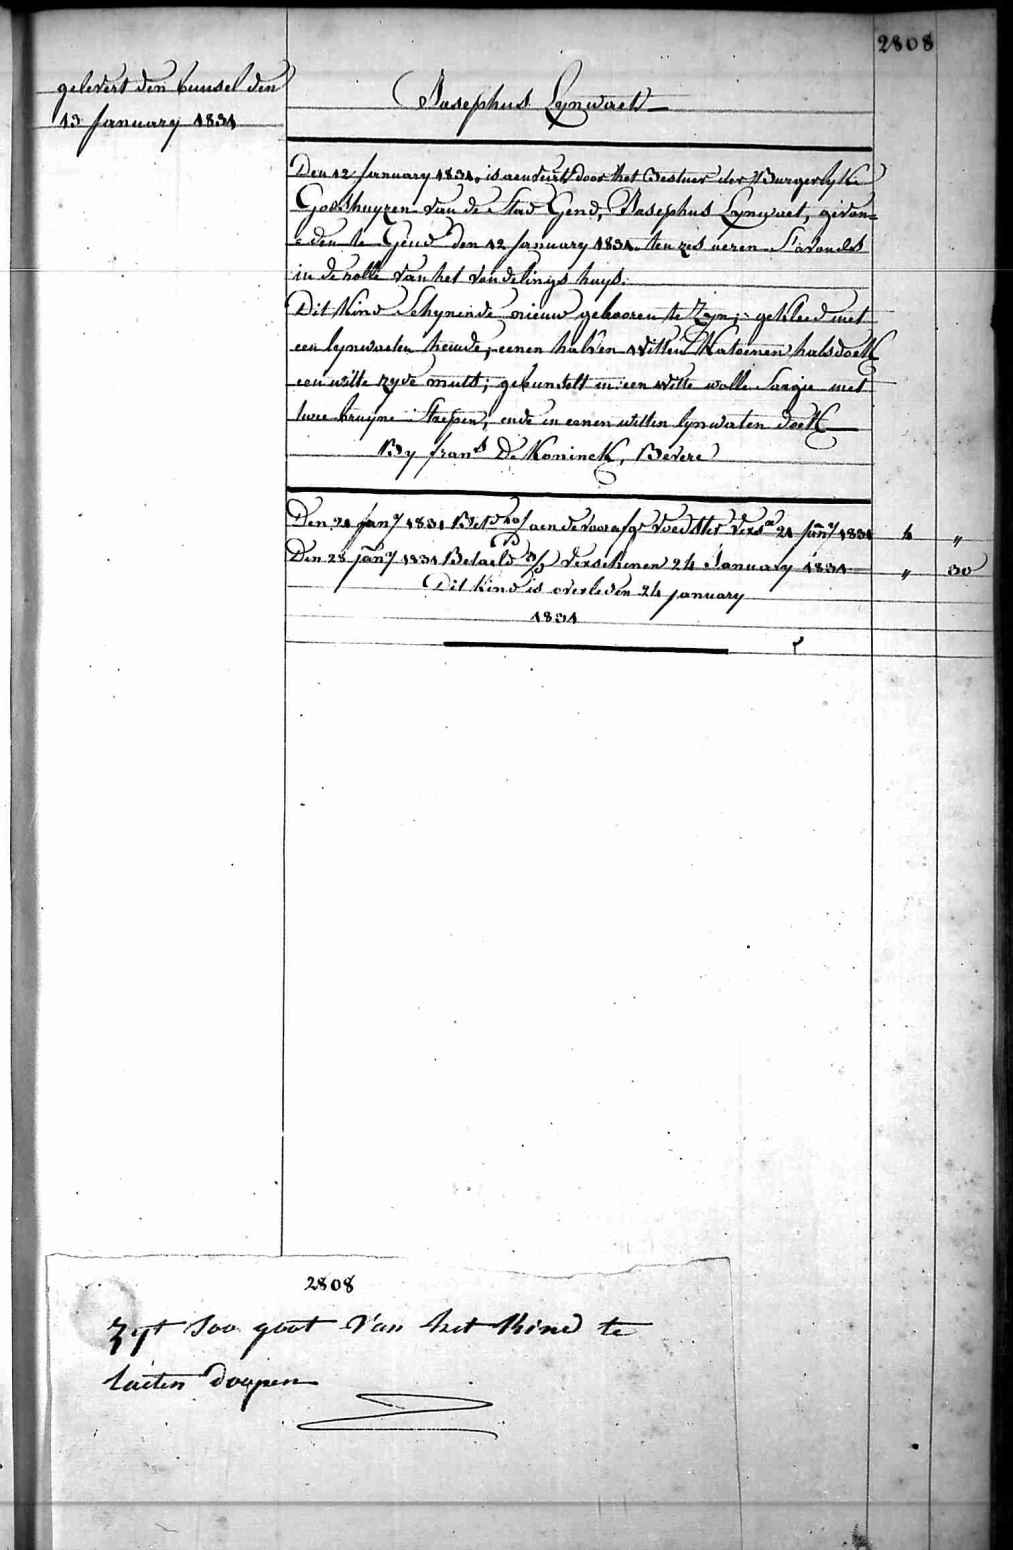 2808
gelevert den bunsel den
13 January 1831
Josephus Lynwaet
Den 12 January 1831. is aenveirt door het Bestuer der Burgerlyke
Godshuyzen van de Stad Gend, Josephus Lynwaet, gevon=
=den te Gend den 12 January 1831. ten zes ueren S'avonds
in de rolle van het vondelings huys.
Dit Kind Schynende nieuw gebooren te Zyn; gekleed met
een lynwaeten hemde, eenen halven witten Katoenen halsdoek
een witte zyde muts; gebunselt in een witte wolle Sargie met
twee bruyne Streépen, ende in eenen witten lynwaten doek
By frans De Koninck, Bevere
Den 21 Jany 1831 aen de voorafge voedster Versn 21 Jany 1831 4 "
Den 28 Jany 1831 Betaeld Verschenen 24 January 1831 " 30
Dit kind is overleden 24 january
1831
2808
Zyt soo goet van het Kind te
laeten doopen